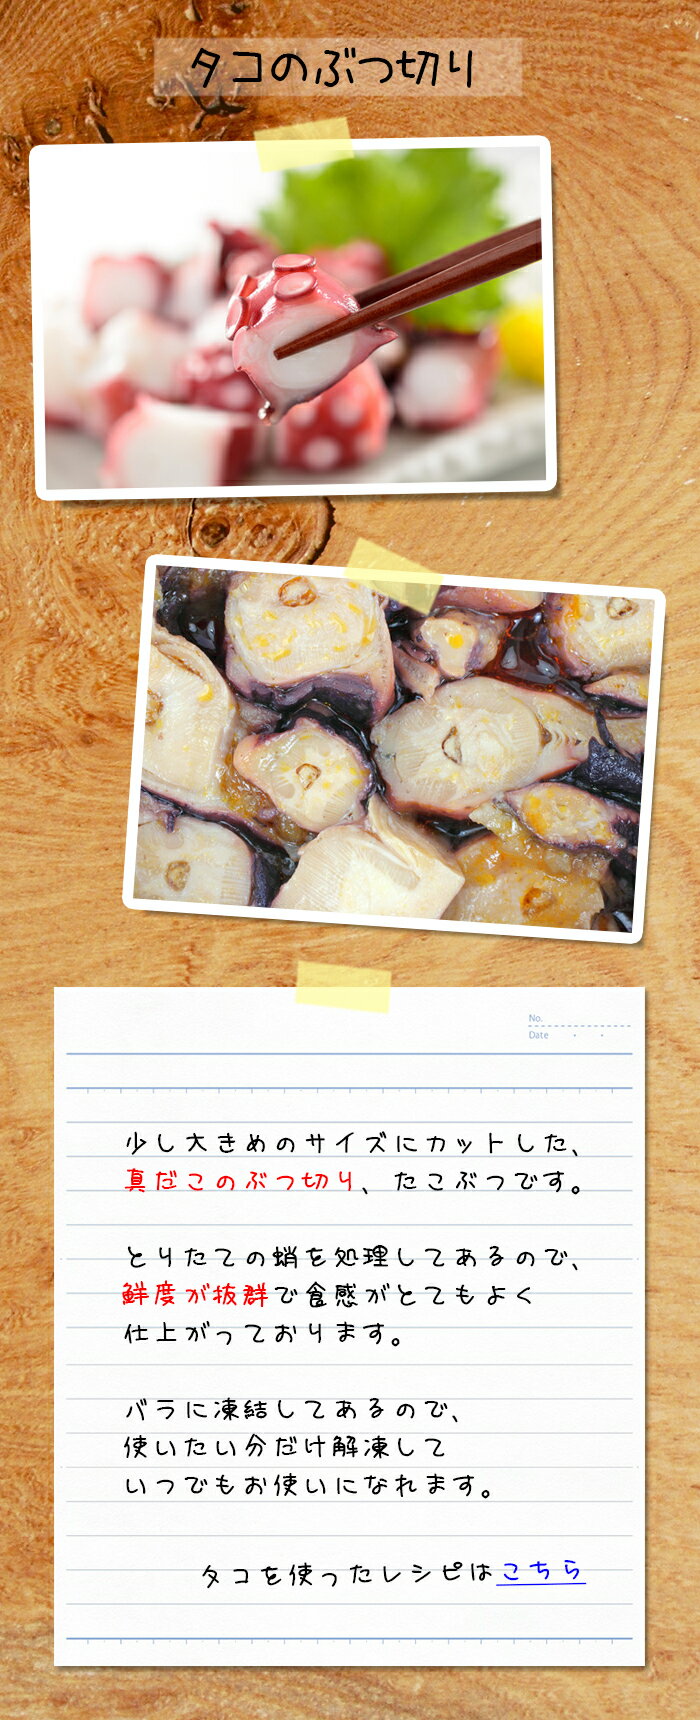 タコのぶつ切り
No.
Date
少し大きめのサイズにカットした、
真だこのぶつ切り、たこぶつです。
とりたての蛸を処理してあるので、
鮮度が抜群で食感がとてもよく
仕上がっております。
バラに凍結してあるので、
使いたい分だけ解凍して
いつでもお使いになれます。
タコを使ったレシピはこちら